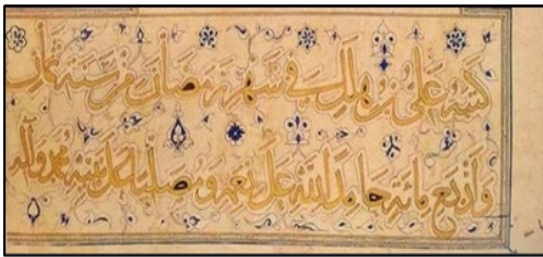 كتبه علي بن هلال في شهر رمضان من سنة ثمان
واربع مائة حامدا لله على نعمه ومصليا على نبيه محمد وآله